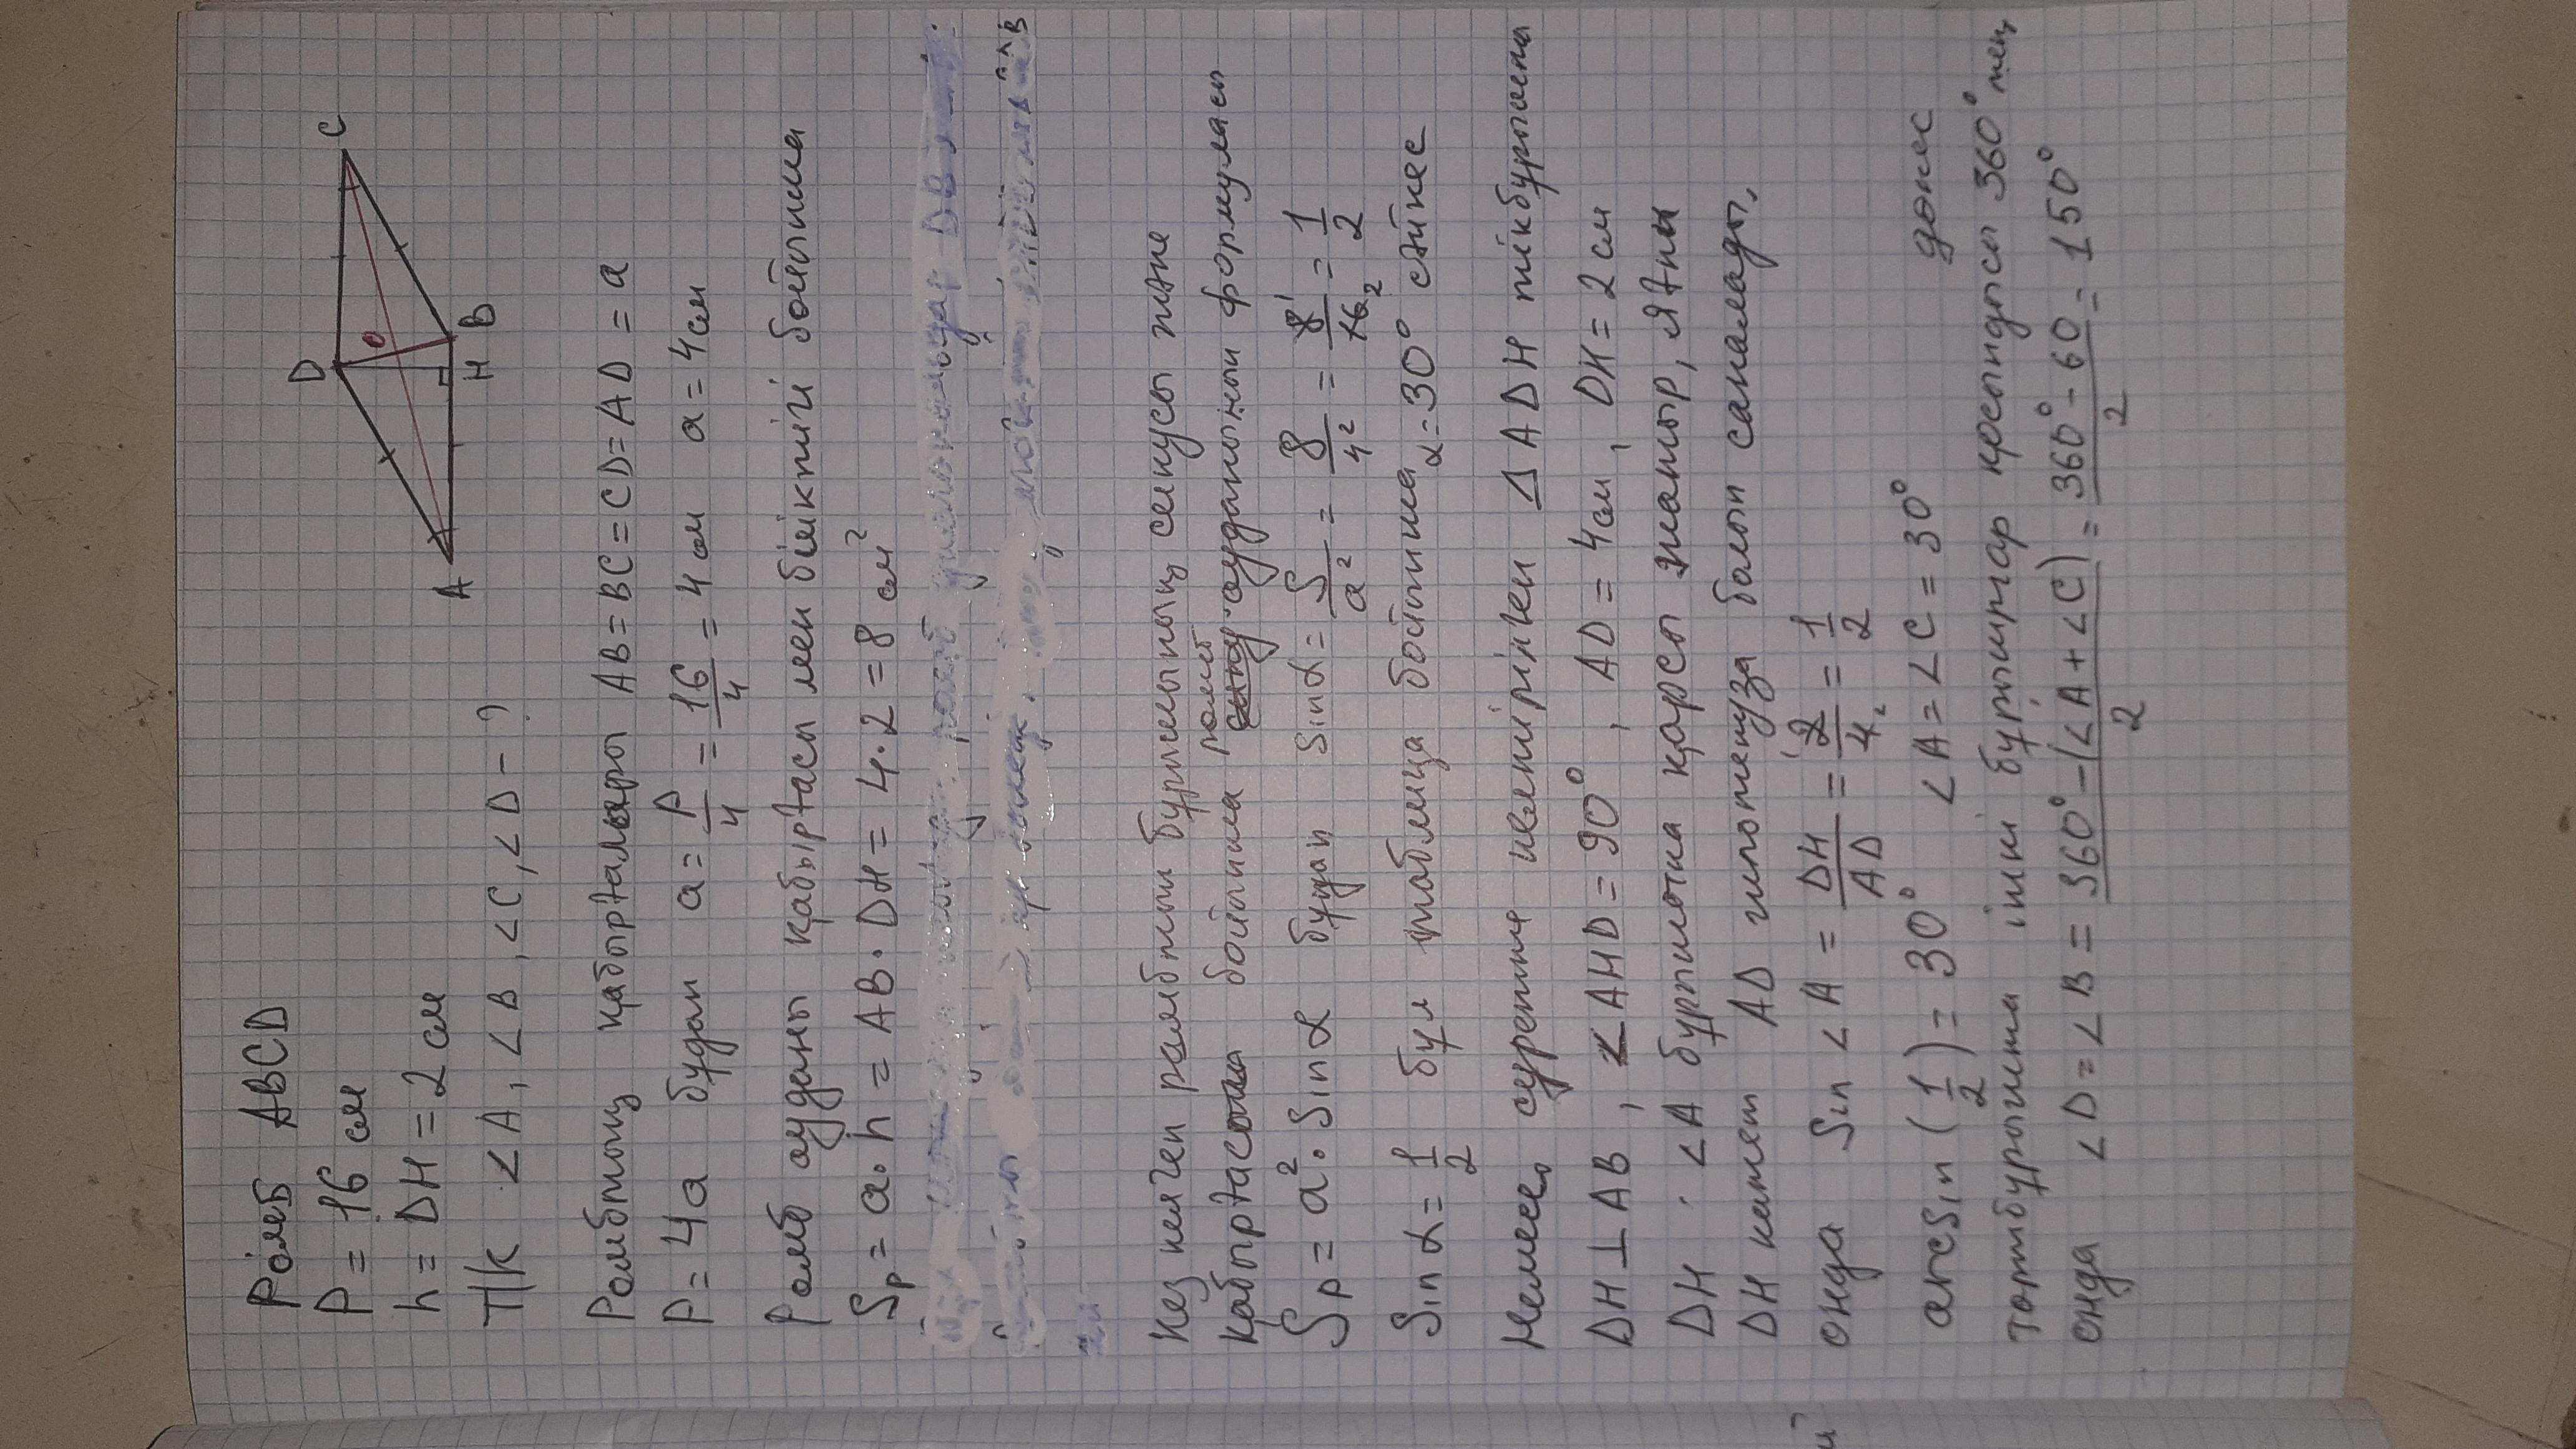 Ромб ABCD
P = 16 см
h = DH = 2 см
Т/К ∠A, ∠B, ∠C, ∠D - ?
A
D
C
O
H
B
Ромбтың қабырғалары AB = BC = CD = AD = a
P = 4a бұдан a = P/4 = 16/4 = 4 см a = 4 см
Ромб ауданы қабырғасы мен биіктігі бойынша
Sр = a · h = AB · DH = 4 · 2 = 8 см²
Кез келген ромбтың бұрышының синусы және
қабырғасына бойынша ромб ауданының формуласы
Sр = a² · Sin α бұдан Sin α = S/a² = 8/4² = 8/16 = 1/2
Sin α = 1/2 бұл таблица бойынша α = 30° сәйкес
Немесе, суретте келтірілген Δ ADH тікбұрышта
DH ⊥ AB, ∠AHD = 90°, AD = 4 см, DH = 2 см
DH · ∠A бұрышқа қарсы жатыр, яғни
DH катет AD гипотенуза болып саналады,
онда Sin ∠A = DH/AD = 2/4 = 1/2
arcsin (1/2) = 30° ∠A = ∠C = 30° дөнес
төртбұрышта ішкі бұрыштар қосындысы 360° тең
онда ∠D = ∠B = (360° - (∠A + ∠C))/2 = (360° - 60)/2 = 150°